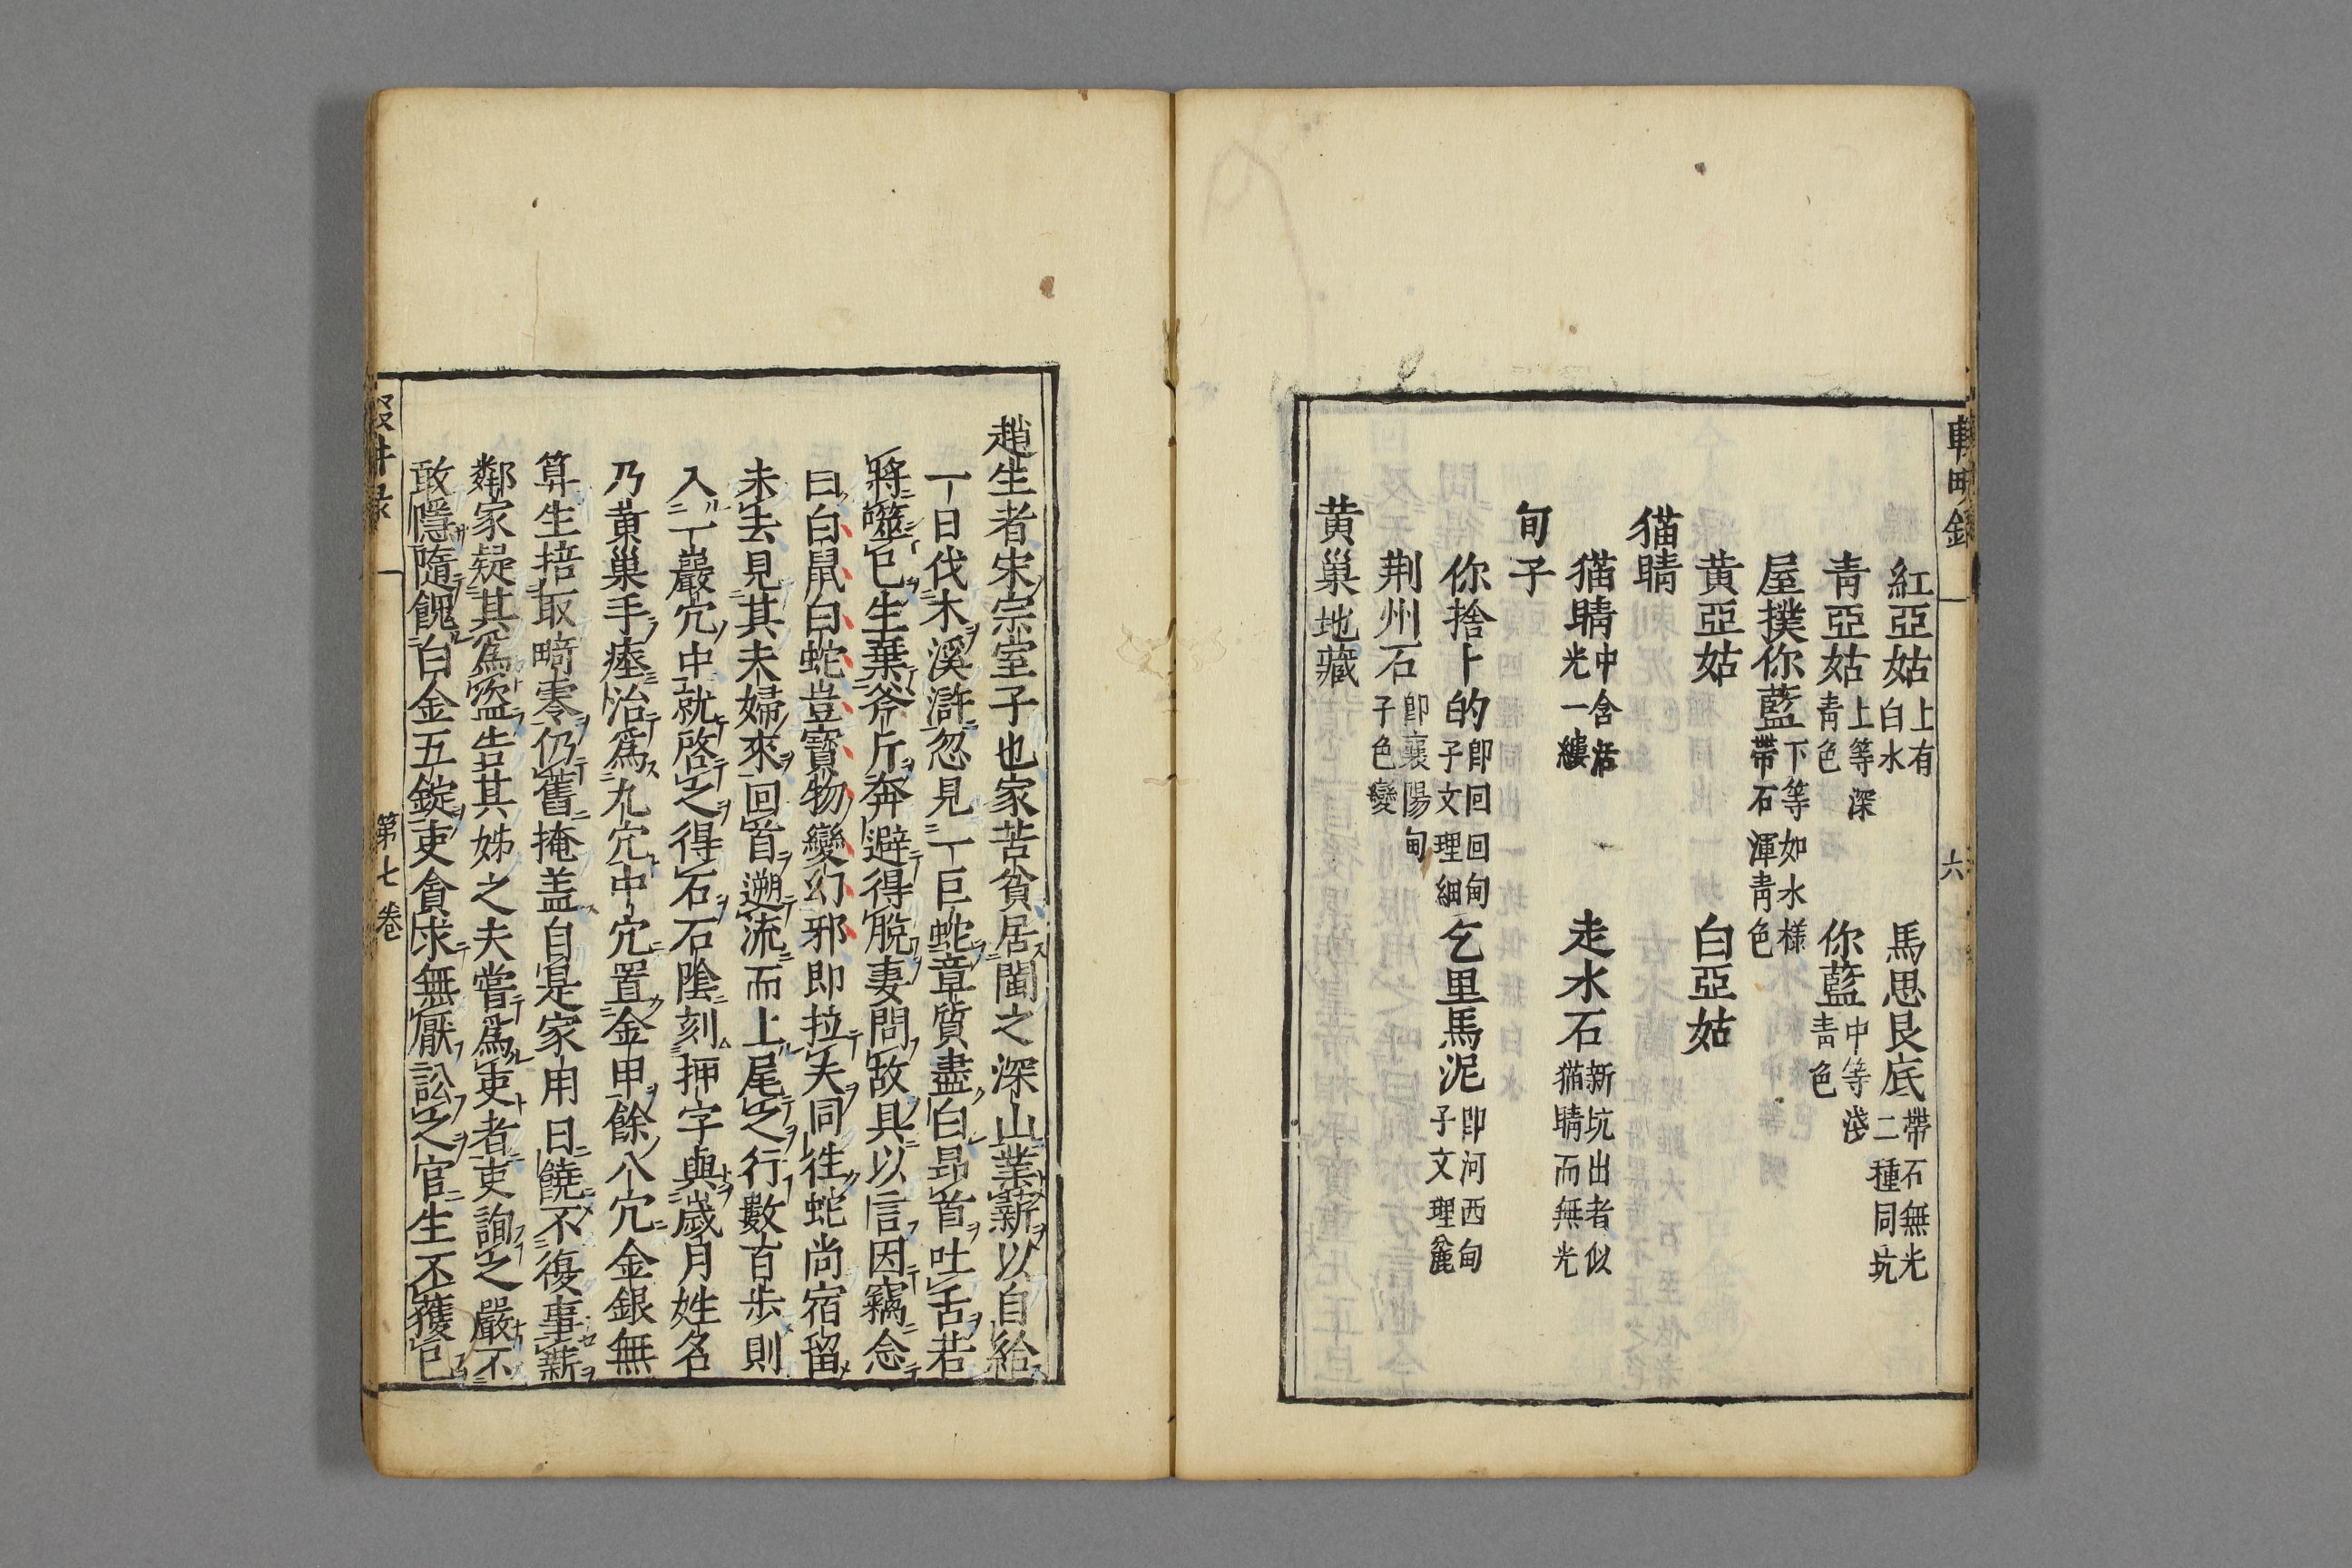 輟畊録
六
紅亞姑上有白水
馬思艮底帶石無光二種同坑
青亞姑上等深青色
你藍中等淺青色
屋撲你藍下等如水樣帶石渾青色
黄亞姑
白亞姑
猫睛
猫睛中含活光一縷
走水石新坑出者似猫睛而無光
旬子
你捨卜的卽回回甸子文理細
乞里馬泥卽河西甸子文理麄
荆州石卽襄陽甸子色變
黄巢地藏
趙生者宋宗室子也家苦貧居閩之深山業薪以自給
一日伐木溪滸忽見一巨蛇章質盡白昂首吐舌若
將噬已生棄斧斤奔避得脫妻問故具以言因竊念
曰白鼠白蛇豈寶物變幻邪即拉夫同徃蛇尚宿留
未去見其夫婦來回首遡流而上尾之行數百步則
入一巖穴中就啓之得石石陰刻押字與歲月姓名
乃黄巢手瘞治爲九穴中穴置金甲餘八穴金銀無
算生掊取畸零仍舊掩盖自是家用日饒不復事薪
鄰家疑其爲盜告其姊之夫嘗爲吏者吏詢之嚴不
敢隱隨餽白金五錠吏貪求無厭訟之官生不獲已
第七卷